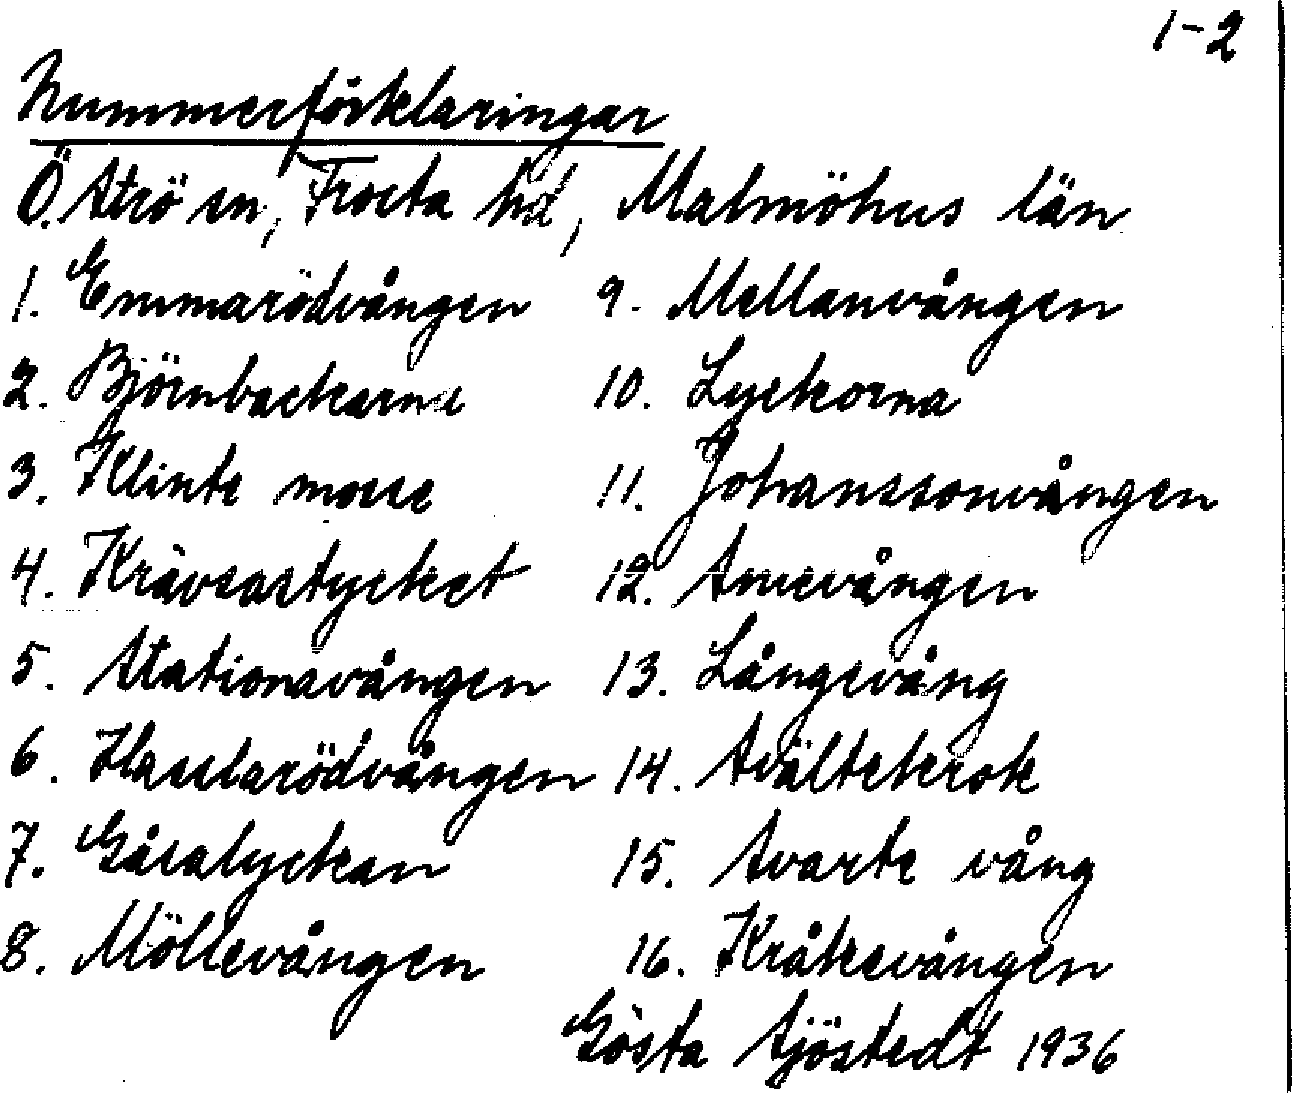 1-2
Nummerförklaringar
Ö. Strö sn, Frosta hd, Malmöhus län
1. Emmarödvången 9. Mellanvången
2. Björnbackarna 10. Lyckorna
3. Klinte mosse 11. Johanssonvången
4. Krävsastycket 12. Smevången
5. Stationsvången 13. Långevång
6. Hasslarödvången 14. Svältekrok
7. Gåsalyckan 15. Svarte vång
8. Möllevången 16. Kråkevången
Gösta Sjöstedt 1936